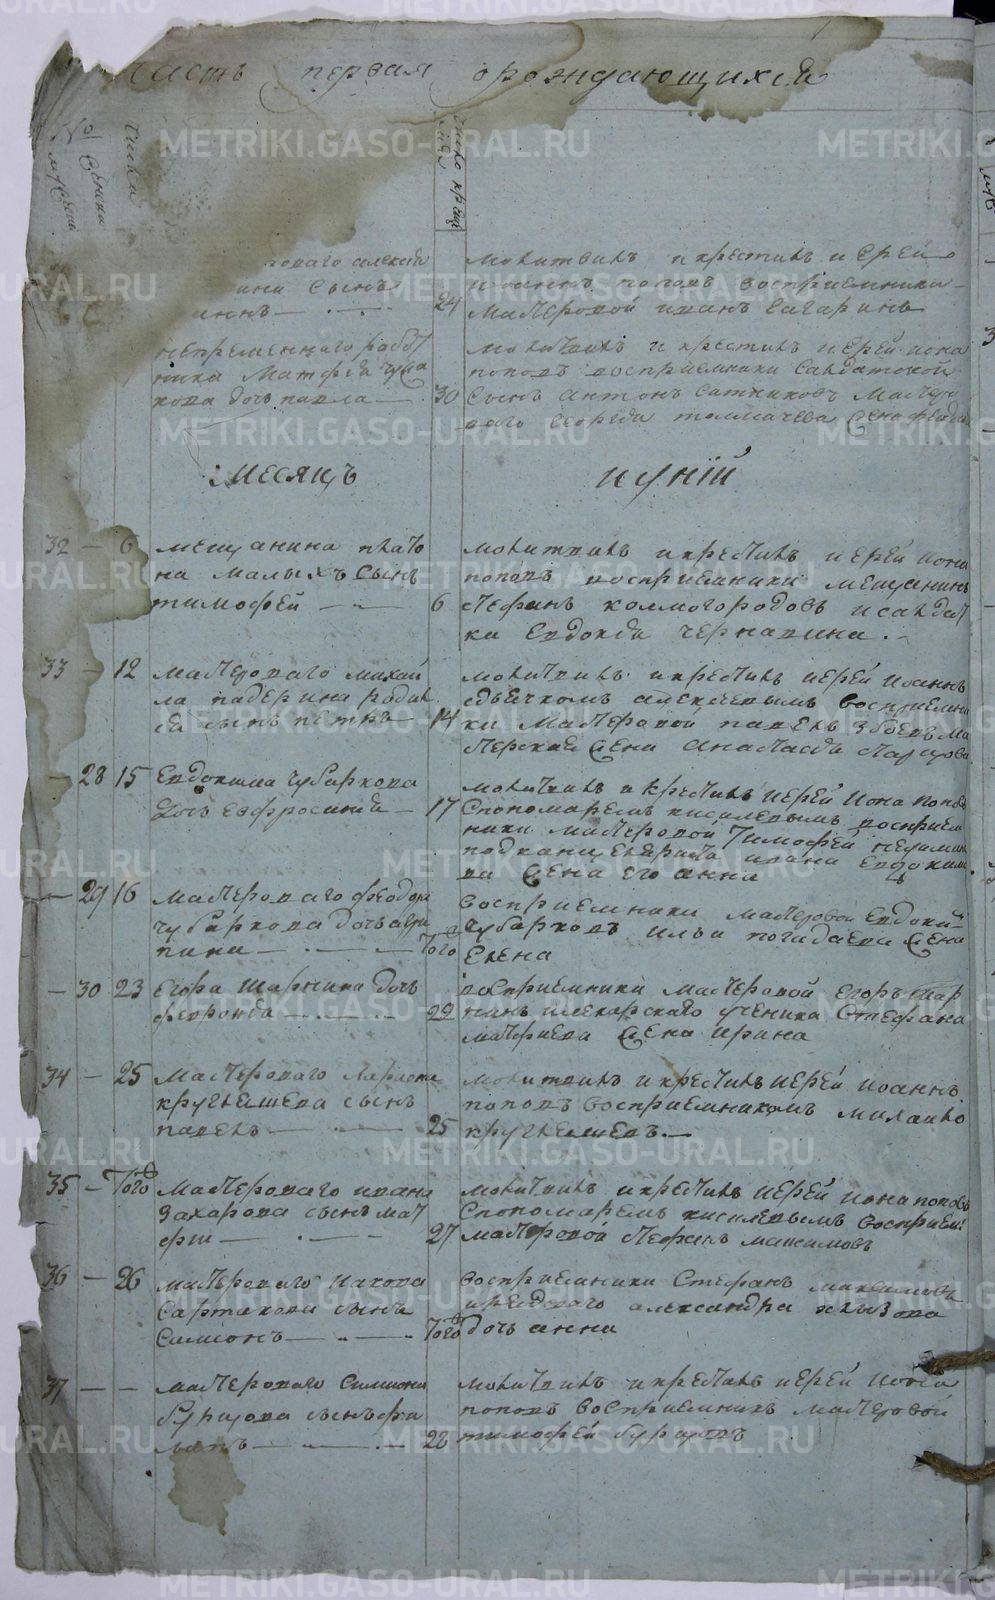 Часть первая о рождающихся
№ мужеска
женска
числа
число крещения
молитвилъ и крестилъ иерей
иоаннъ поповъ восприемники
24 мастеровой иванъ гагаринъ
непременнаго работ
ника Матфея чуса
кова дочь павла
молитвилъ и крестилъ иерей иона
поповъ восприемники салдатской
30 сынъ антонъ сатниковъ мастеро
ваго георгия толмачева жена федо
месяцъ иунiй
32 — 6 мещанина плато
на малыхъ сынъ
тимофей
молитвилъ и крестилъ иерей иона
поповъ восприемники мещанинъ
6 стефанъ колмогородовъ и салдат
ка Евдокия чернавина.
33 — 12 мастероваго михай
ла падерина родил
ся сынъ петръ
молитвилъ и крестилъ иерей иоаннъ
здьячкомъ алексеевымъ восприемни
14 ки мастеровой павелъ збоевъ ма
стерская жена анастасия
— 28 15 Евдокима чубаркова
дочь евфросиния
молитвилъ и крестилъ иерей иона попов
17 спономаремъ киселевымъ восприем
ники мастеровой тимофей
подканцеляриста ивана евдоким
ва жена его анна
— 29 16 мастероваго феодора
чубаркова дочь агри
пина
восприемники мастеровой Евдоким
того чубарковъ ильи погадаева жена
елена
— 30 23 егора шарнина дочь
феврония
восприемники мастеровой егоръ шар
29 нинъ лекарскаго ученика стефана
матфиева жена ирина
34 — 25 мастероваго лариона
круглешева сынъ
павелъ
молитвилъ и крестилъ иерей иоаннъ
поповъ восприемникомъ михайло
25 круглешевъ.
35 — того мастероваго ивана
захарова сынъ мат
фий
молитвилъ и крестилъ иерей иона поповъ
спономаремъ киселевымъ восприем:
27 мастеровой стефанъ максимовъ
36 — 26 мастероваго иакова
сартакова сынъ
симионъ
восприемники стефанъ максимовъ
александра хлызова
того дочь анна
37 — — мастероваго симиона
бурцова сынъ фи
липъ
молитвилъ и крестилъ иерей иона
поповъ восприемникъ мастеровой
28 тимофей бурцовъ
METRIKI.GASO-URAL.RU